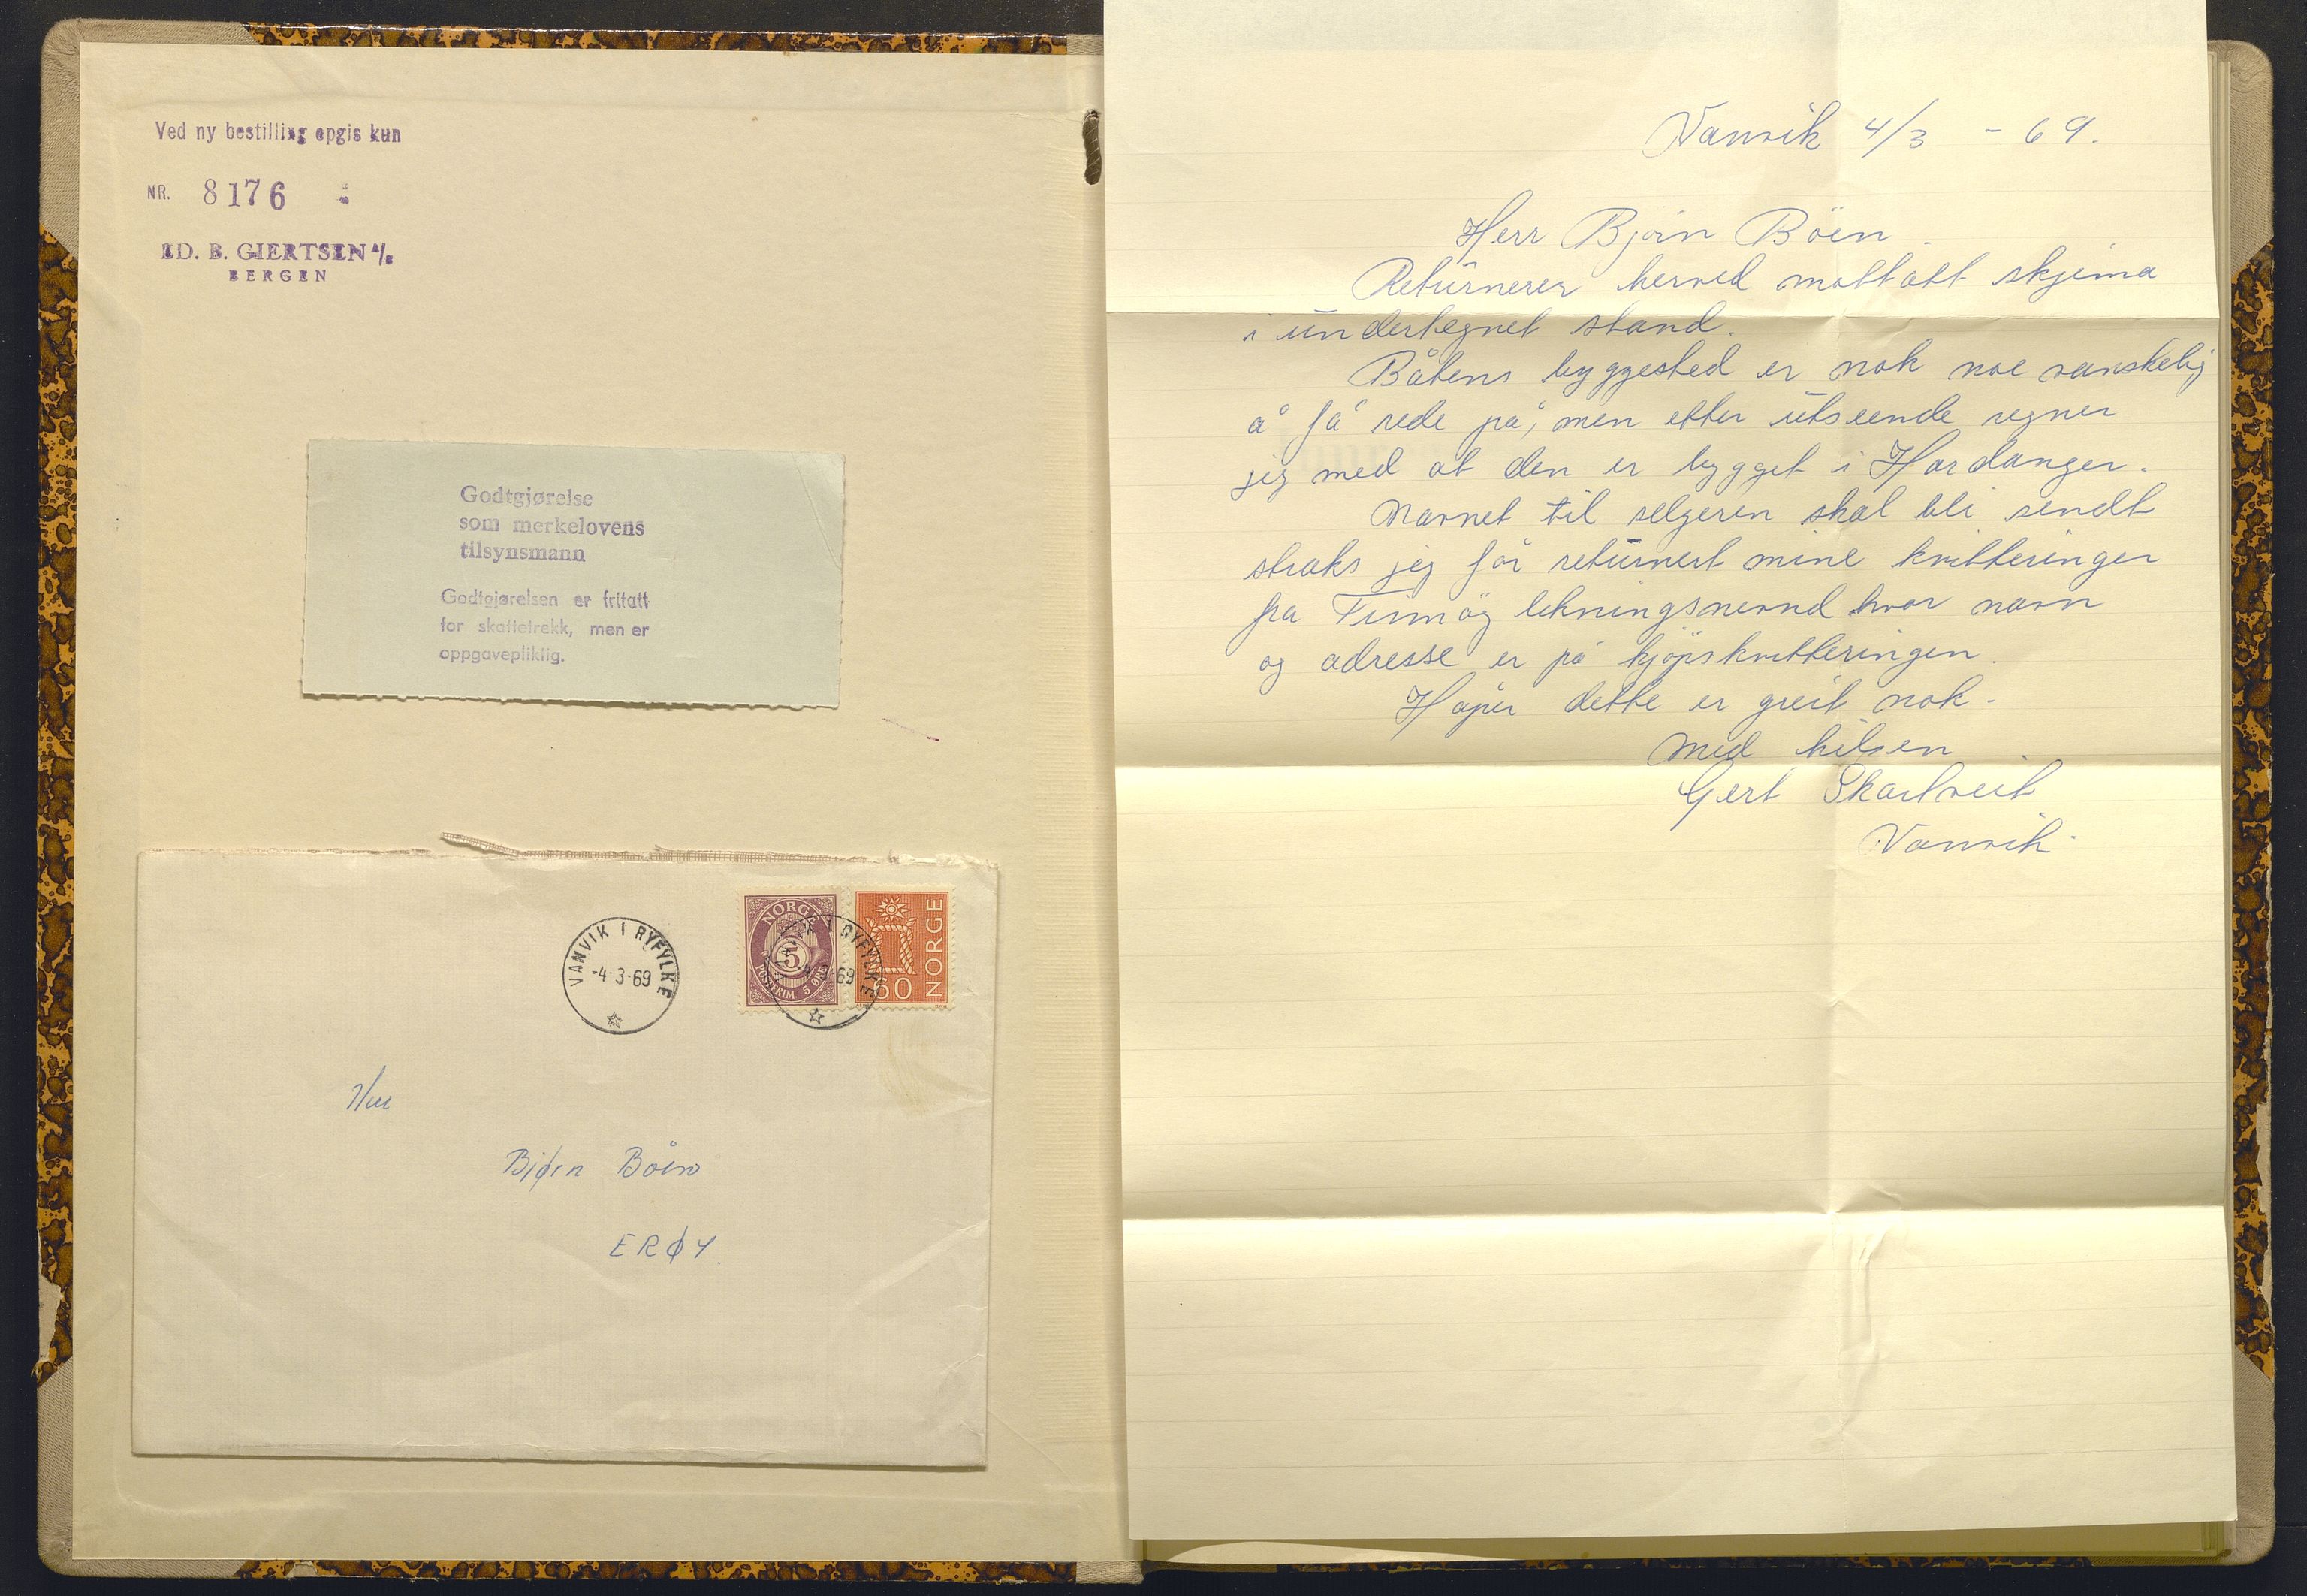 Ved ny bestilling opgis kun
NR. 8176
ED. B. GIERTSEN A/S
BERGEN
Godtgjørelse
som merkelovens
tilsynsmann
Godtgjørelsen er fritatt
for skattetrekk, men er
oppgavepliktig.
VANVIK I RYFYLKE
-4-3-69
NORGE
5
POSTFRIM. 5 ØRE
VANVIK I RYFYLKE
-4-3-69
60 NORGE
Herr
Bjørn Böen
ERØY.
Vanvik 4/3 - 69.
Herr Björn Böen.
Returnerer herved mottatt skjema
i undertegnet stand.
Båtens byggested er nok noe vanskelig
å få rede på, men etter utseende regner
jeg med at den er bygget i Hardanger.
Navnet til selgeren skal bli sendt
straks jeg får returnert mine kvitteringer
fra Finnöy likningsnevnd hvor navn
og adresse er på kjöpskvitteringen.
Håper dette er greit nok.
Med hilsen
Gert Skartveit
Vanvik.